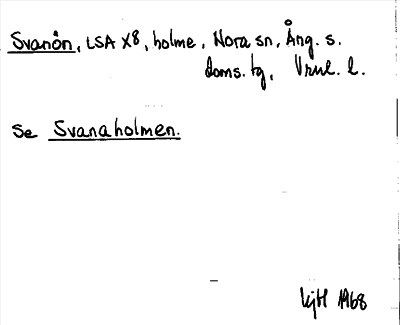 Svanön, LSA X8, holme, Nora sn, Ång. s.
doms. tg,
Se Svanaholmen.
1968